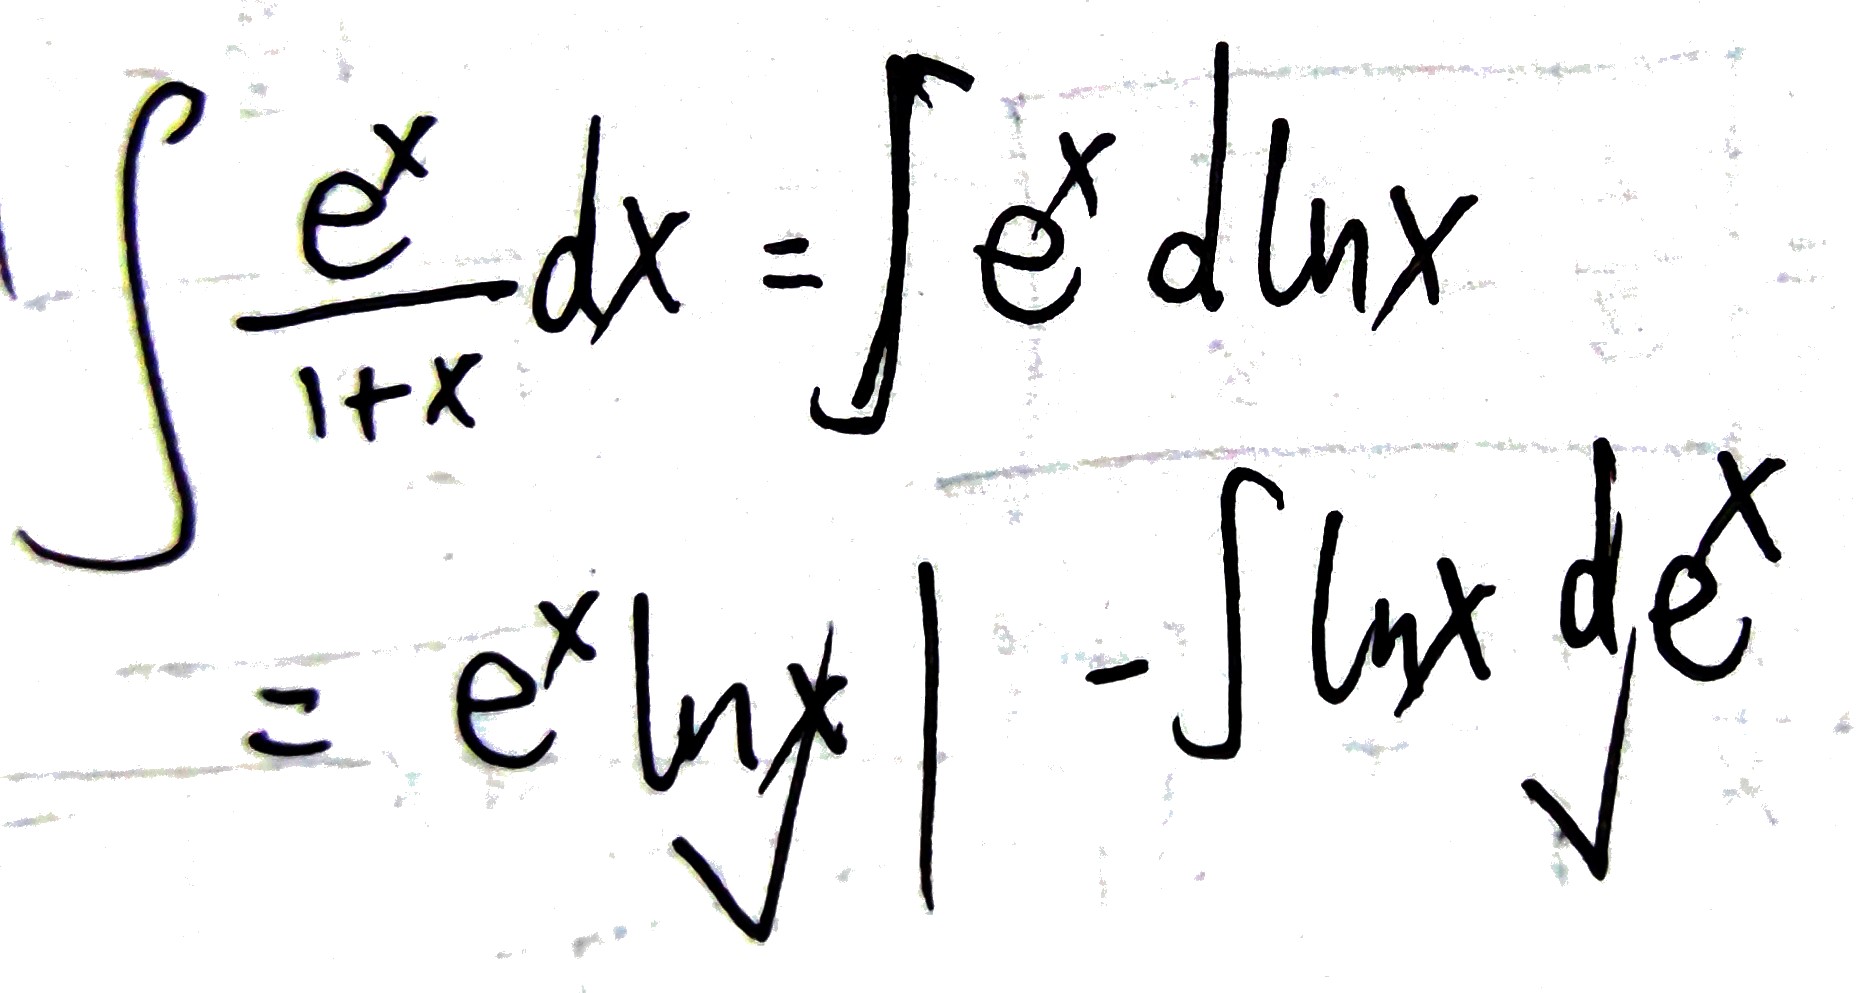 ∫ e^x/(1+x) dx = ∫ e^x d ln x
= e^x ln x | - ∫ ln x d e^x